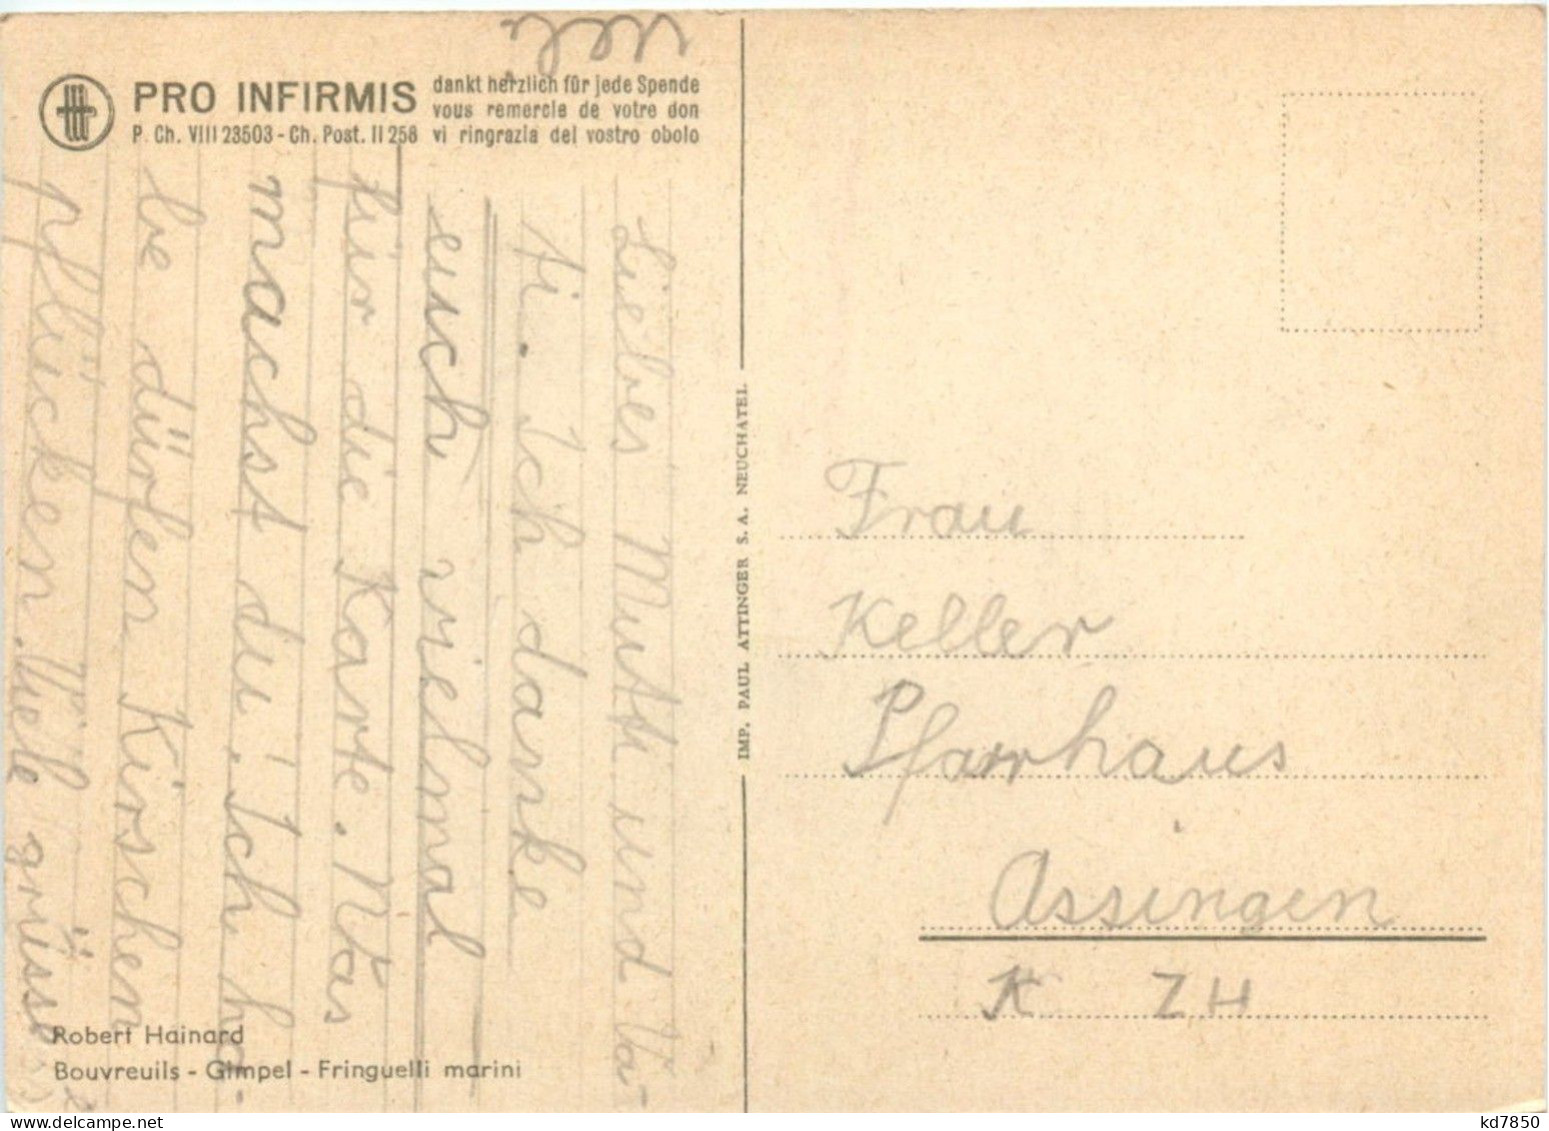 PRO INFIRMIS
P. Ch. VIII 23503 - Ch. Post. II 258
dankt herzlich für jede Spende
vous remercie de votre don
vi ringrazia del vostro obolo
Liebes Mutti und Va-
ti. Ich danke
euch vielmal
für die Karte. Was
machst du. Ich ha-
be dürfen Kirschen
pflücken. Viele grüsse
Ueli
Robert Hainard
Bouvreuils - Gimpel - Fringuelli marini
IMP. PAUL ATTINGER S. A. NEUCHATEL
Frau
Keller
Pfarrhaus
Ossingen
K ZH
kd7850